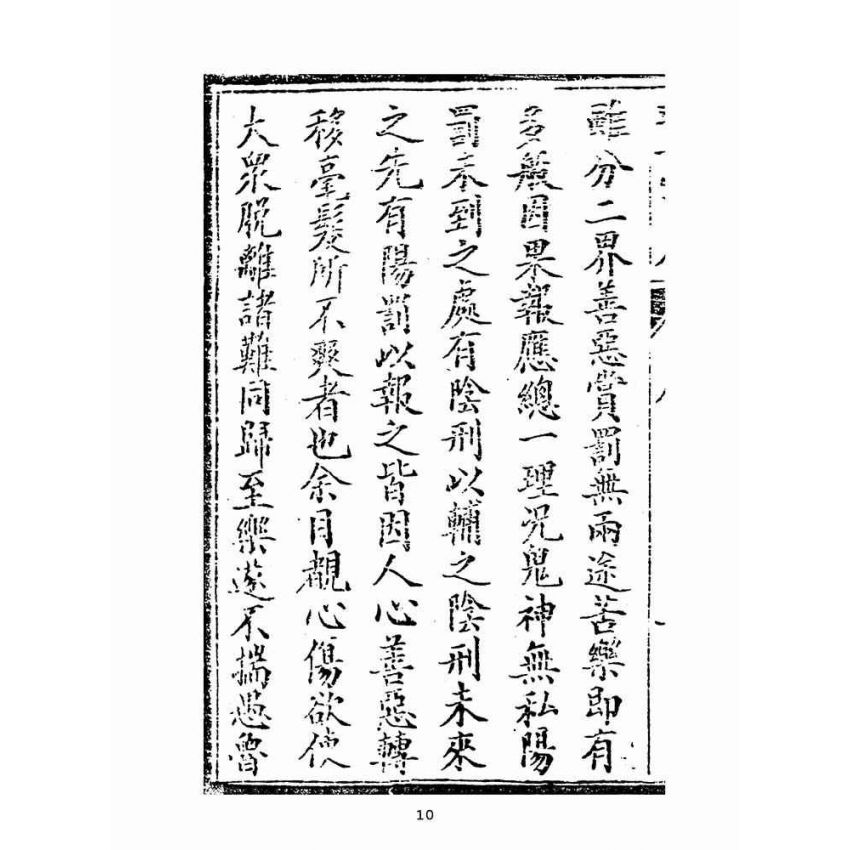 雖分二界善惡賞罰無兩途苦樂即有
多般因果報應總一理况鬼神無私陽
罰未到之處有陰刑以輔之陰刑未來
之先有陽罰以報之皆因人心善惡轉
移毫髮所不爽者也余目覩心傷欲使
大衆脫離諸難同歸至樂遂不揣愚魯
10